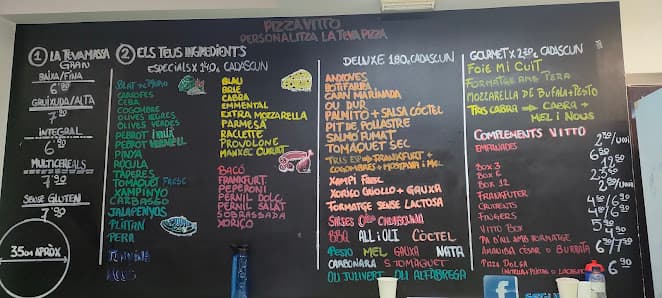 PIZZA VITTO
PERSONALITZA LA TEVA PIZZA
1 LA TEVA MASSA
GRAN
BAIXA/FINA
6'80
GRUIXUDA/ALTA
7'20
INTEGRAL
6'90
MULTICEREALS
7'90
SENSE GLUTEN
7'90
35cm APROX
2 ELS TEUS INGREDIENTS
ESPECIALS x 1'40€ CADASCUN
CAROTES
CEBA
COGOMBRE
OLIVES NEGRES
OLIVES VERDES
PEBROT
PEBROT VERMELL
PINYA
RÚCULA
TÀPERES
TOMÀQUET FRESC
XAMPINYO
CARBASSÓ
JALAPEÑOS
PLÀTAN
PERA
TONYINA
BLAU
BRIE
CABRA
EMMENTAL
EXTRA MOZZARELLA
PARMESÀ
RACLETTE
PROVOLONE
MANXEC CURAT
BACÓ
FRANKFURT
PEPERONI
PERNIL DOLÇ
PERNIL SALAT
SOBRASSADA
XORIÇO
DELUXE 1'80€ CADASCUN
ANXOVES
BOTIFARRA
CARN MARINADA
OU DUR
PALMITO + SALSA CÓCTEL
PIT DE POLLASTRE
SALMÓ FUMAT
TOMÀQUET SEC
XAMPI FRESC
XORIÇO CRIOLLO + GAUXA
FORMATGE SENSE LACTOSA
SALSES
BBQ ALLIOLI CÒCTEL
PESTO MEL GAUXA NATA
CARBONARA S. TOMÀQUET
OLI JULIVERT OLI ALFÀBREGA
GOURMET x 2'30€ CADASCUN
FOIE MI CUIT
FORMATGE AMB PERA
MOZZARELLA DE BUFALA + PESTO
TRIS CABRA → CABRA +
MEL i NOUS
COMPLEMENTS VITTO
EMPANADES
BOX 3
BOX 6
BOX 12
FRANKFURT
CRUIXENTS
FINGERS
VITTO BOX
PA D'ALL AMB FORMATGE
AMANIDA CÈSAR O BURRATA
PIZZA DOLÇA
f